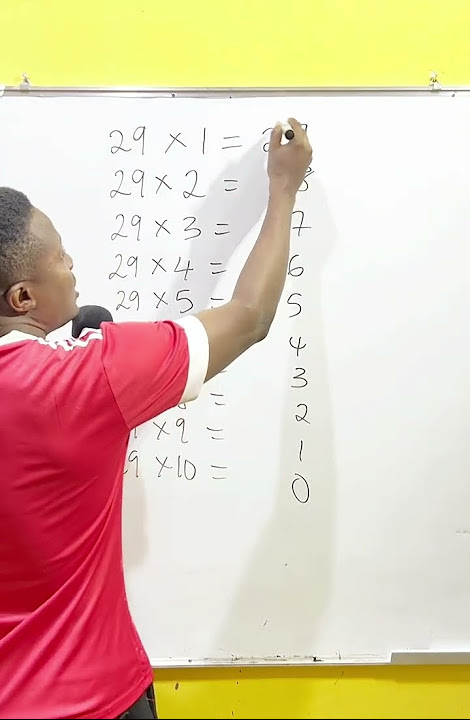 29 × 1 = 2
29 × 2 = 8
29 × 3 = 7
29 × 4 = 6
29 × 5 = 5
4
3
= 2
× 9 = 1
9 × 10 = 0